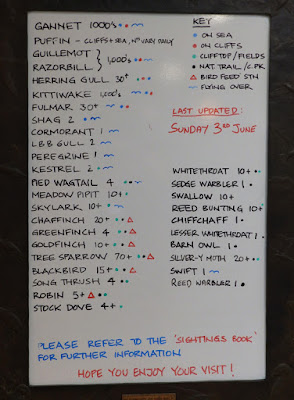 GANNET 1000's
PUFFIN - CLIFFS + SEA, No VARY DAILY
GUILLEMOT } 1,000's
RAZORBILL
HERRING GULL 30+
KITTIWAKE 1,000's
FULMAR 30+
SHAG 2
CORMORANT 1
LBB GULL 2
PEREGRINE 1
KESTREL 2
PIED WAGTAIL 4
MEADOW PIPIT 10+
SKYLARK 10+
CHAFFINCH 20+
GREENFINCH 4
GOLDFINCH 10+
TREE SPARROW 70+
BLACKBIRD 15+
SONG THRUSH 4
ROBIN 5+
STOCK DOVE 4+
KEY
ON SEA
ON CLIFFS
CLIFFTOP/FIELDS
NAT. TRAIL/C.PK
BIRD FEED STN
FLYING OVER
LAST UPDATED:
SUNDAY 3RD JUNE
WHITETHROAT 10+
SEDGE WARBLER 1
SWALLOW 10+
REED BUNTING 10+
CHIFFCHAFF 1
LESSER WHITETHROAT 1
BARN OWL 1
SILVER-Y MOTH 20+
SWIFT 1
REED WARBLER 1
PLEASE REFER TO THE 'SIGHTINGS BOOK'
FOR FURTHER INFORMATION
HOPE YOU ENJOY YOUR VISIT!